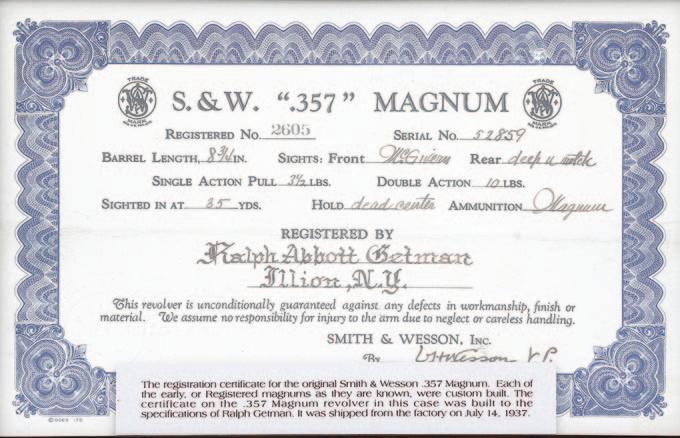 TRADE
MARK
TRADE
MARK
S. & W. ".357" MAGNUM
REGISTERED NO. 2605 SERIAL NO. 52859
BARREL LENGTH, 8¾ IN. SIGHTS: Front McGivern Rear deep u notch
SINGLE ACTION PULL 3½ LBS. DOUBLE ACTION 10 LBS.
SIGHTED IN AT 35 YDS. HOLD dead center AMMUNITION Magnum
REGISTERED BY
Ralph Abbott Getman
Ilion, N.Y.
This revolver is unconditionally guaranteed against any defects in workmanship, finish or
material. We assume no responsibility for injury to the arm due to neglect or careless handling.
SMITH & WESSON, INC.
By Wesson V.P.
The registration certificate for the original Smith & Wesson .357 Magnum. Each of
the early, or Registered magnums as they are known, were custom built. The
certificate on the .357 Magnum revolver in this case was built to the
specifications of Ralph Getman. It was shipped from the factory on July 14, 1937.